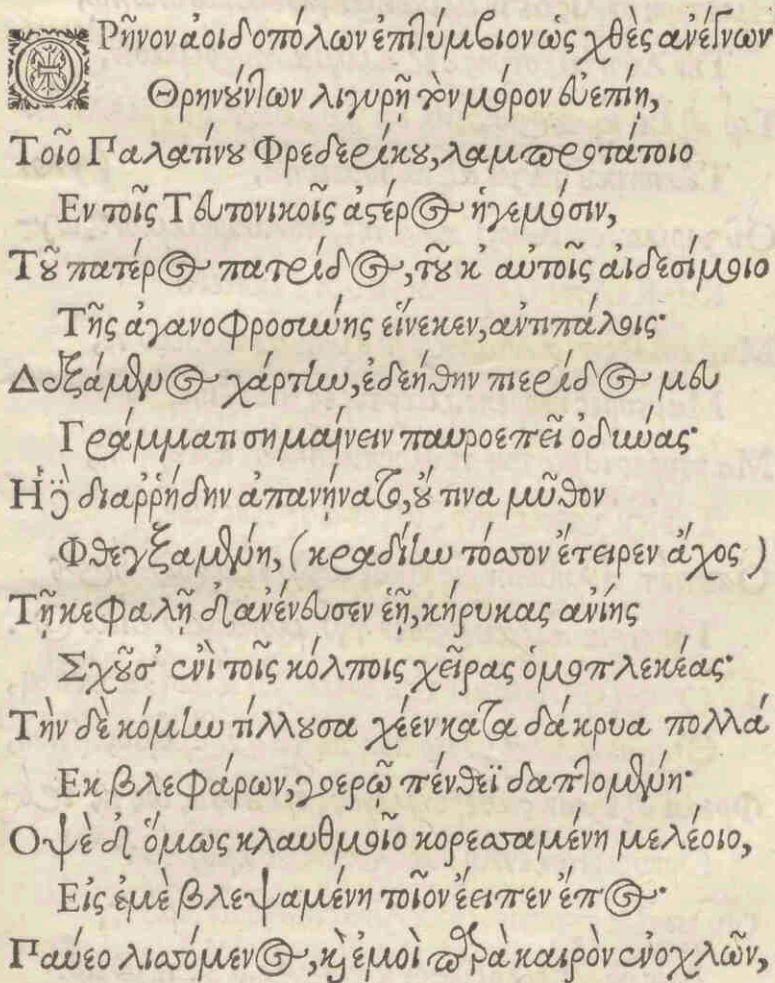 ΘΡῆνον ἀοιδοπόλων ἐπιτύμβιον ὡς χθὲς ἀνέγνων
Θρηνούντων λιγυρῇ τὸν μόρον εὐεπίῃ,
Τοῖο Παλατίνου Φρεδερίκου, λαμπροτάτοιο
Εν τοῖς Τευτονικοῖς ἀστέρος ἡγεμόσιν,
Τοῦ πατέρος πατρίδος, τοῦ κ' αὐτοῖς αἰδεσίμοιο
Τῆς ἀγανοφροσύνης εἵνεκεν, ἀντιπάλοις·
Δεξάμενος χάρτην, ἐδεήθην πιερίδος μευ
Γράμματι σημαίνειν παυροεπεῖ ὀδύνας·
Ηδὲ διαῤῥήδην ἀπανήνατο, οὔ τινα μῦθον
Φθεγξαμένη, (κραδίην τόσσον ἔτειρεν ἄχος)
Τῇ κεφαλῇ δ' ἀνένευσεν ἑῇ, κήρυκας ἀνίης
Σχοῦσ' ἐνὶ τοῖς κόλποις χεῖρας ὁμοπλεκέας·
Τὴν δὲ κόμην τίλλουσα χέεν κατὰ δάκρυα πολλά
Εκ βλεφάρων, γοερῷ πένθεϊ δαπτομένη·
Οψὲ δ' ὅμως κλαυθμοῖο κορεσσαμένη μελέοιο,
Εἰς ἐμὲ βλεψαμένη τοῖον ἔειπεν ἔπος·
Παύεο λισσόμενος, καὶ ἐμοὶ παρὰ καιρὸν ἐνοχλῶν,